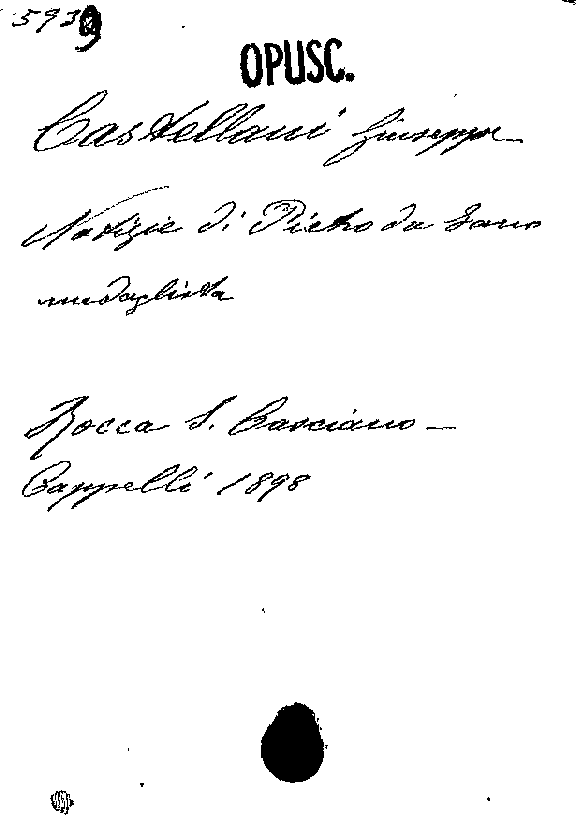 5939
OPUSC.
Castellani Giuseppe
Notizie di Pietro da Fano
medaglista
Rocca S. Casciano -
Cappelli 1898